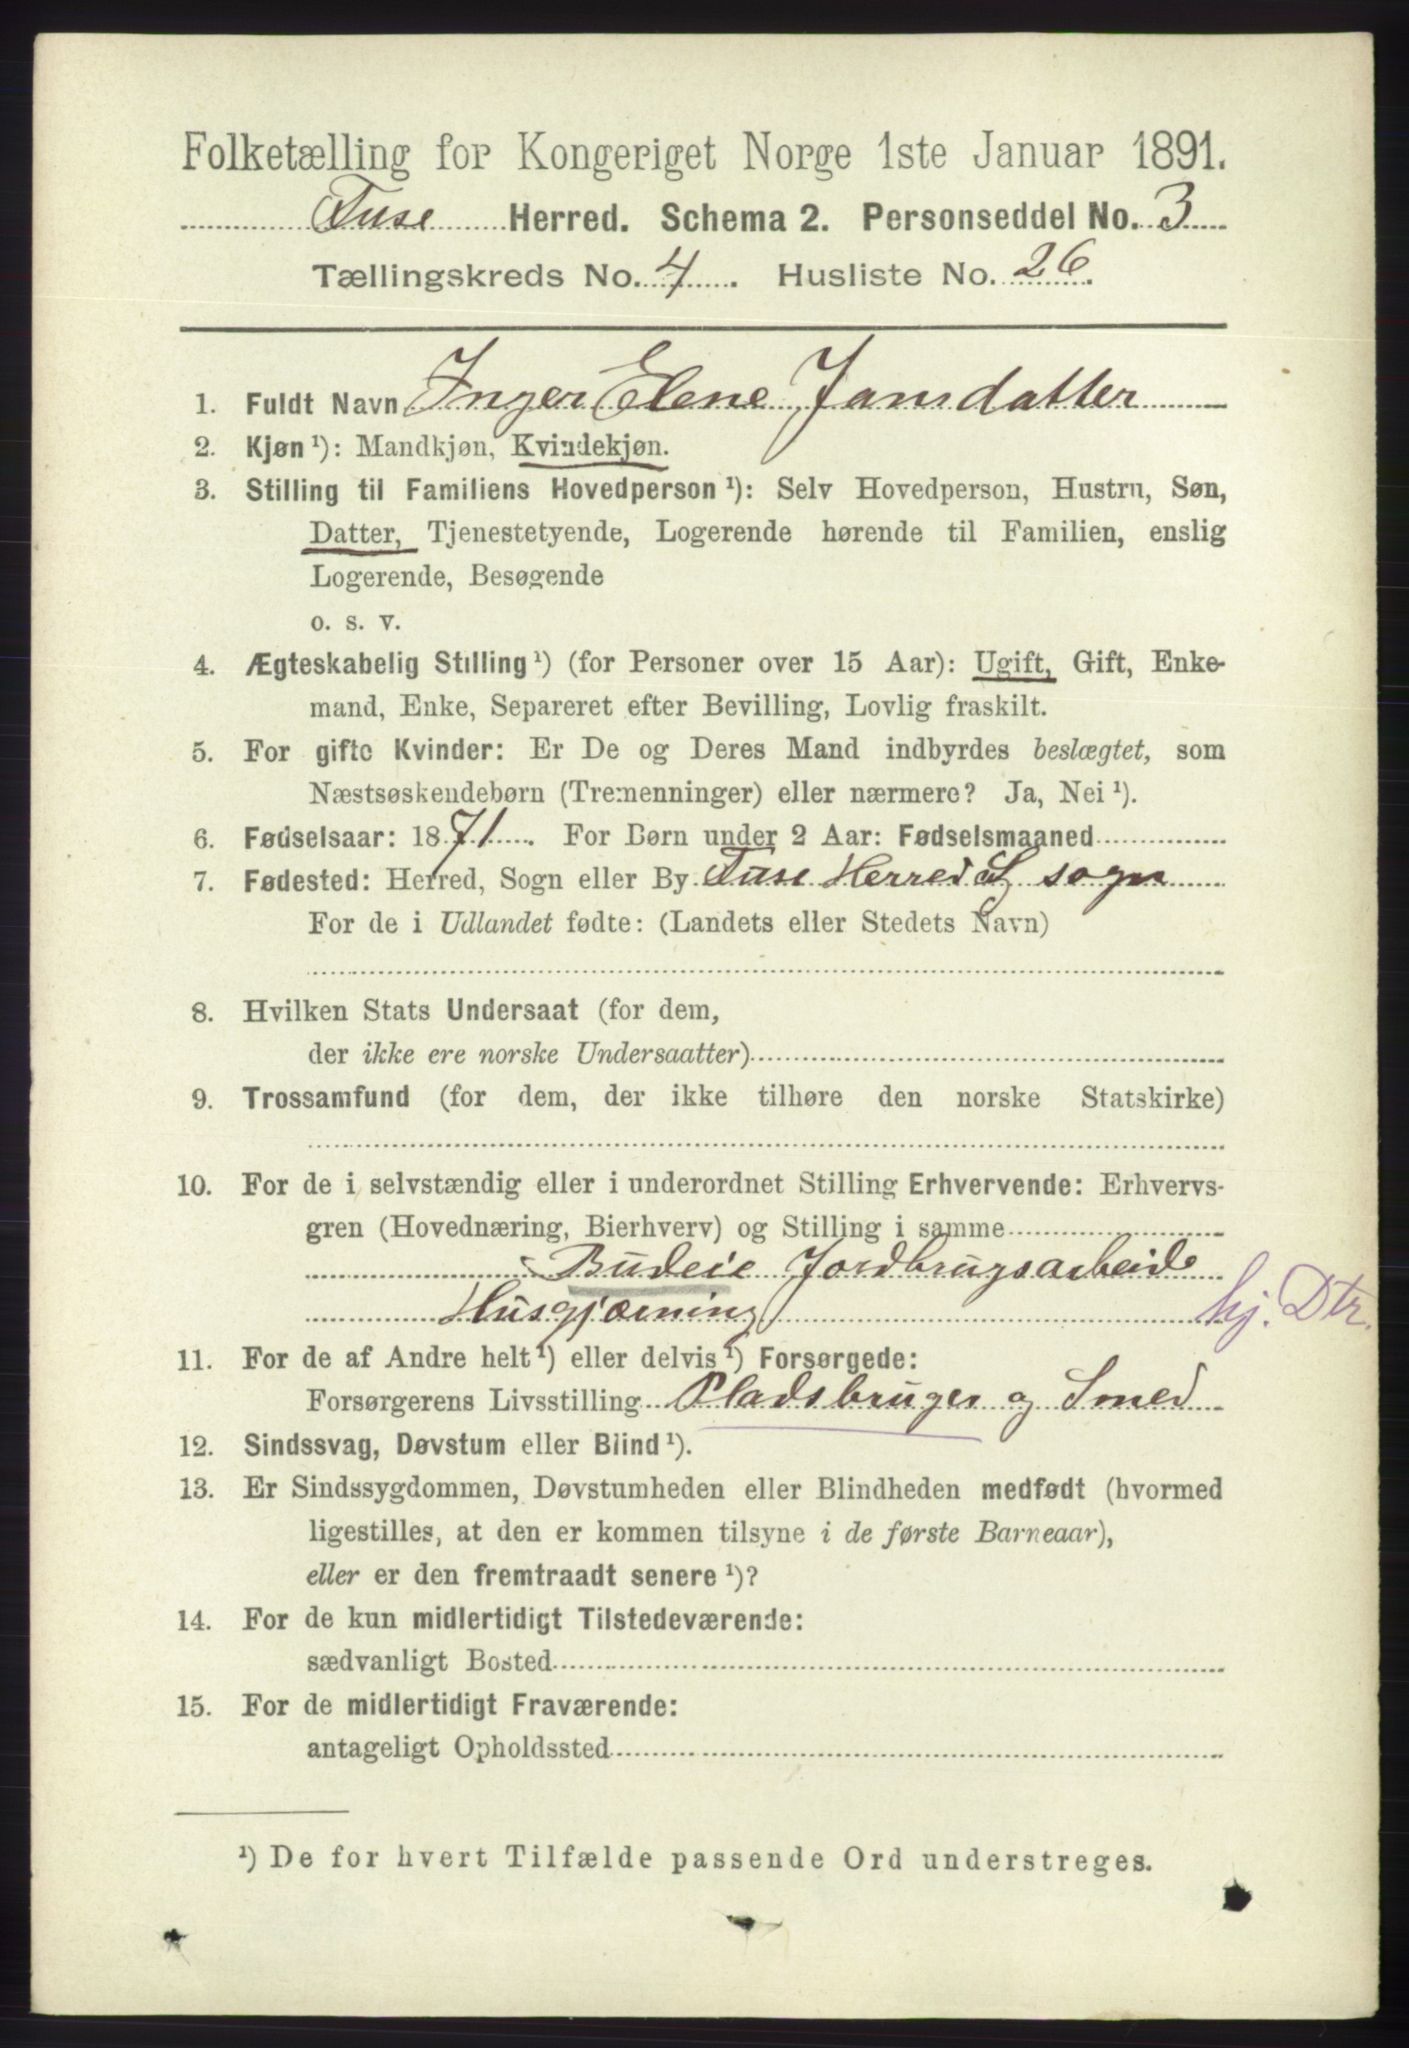 Folketælling for Kongeriget Norge 1ste Januar 1891.
Fuse Herred. Schema 2. Personseddel No. 3
Tællingskreds No. 4. Husliste No. 26.
1. Fuldt Navn Inger Elene Jansdatter
2. Kjøn ¹): Mandkjøn, Kvindekjøn.
3. Stilling til Familiens Hovedperson ¹): Selv Hovedperson, Hustru, Søn,
Datter, Tjenestetyende, Logerende hørende til Familien, enslig
Logerende, Besøgende
o. s. v.
4. Ægteskabelig Stilling ¹) (for Personer over 15 Aar): Ugift, Gift, Enke-
mand, Enke, Separeret efter Bevilling, Lovlig fraskilt.
5. For gifte Kvinder: Er De og Deres Mand indbyrdes beslægtet, som
Næstsøskendebørn (Tremenninger) eller nærmere? Ja, Nei ¹).
6. Fødselsaar: 1871. For Børn under 2 Aar: Fødselsmaaned
7. Fødested: Herred, Sogn eller By Fuse Herred & sogn
For de i Udlandet fødte: (Landets eller Stedets Navn)
8. Hvilken Stats Undersaat (for dem,
der ikke ere norske Undersaatter)
9. Trossamfund (for dem, der ikke tilhøre den norske Statskirke)
10. For de i selvstændig eller i underordnet Stilling Erhvervende: Erhvervs-
gren (Hovednæring, Bierhverv) og Stilling i samme
Budeie Jordbrugsarbeide
Husgjærning hj. Dtr.
11. For de af Andre helt ¹) eller delvis ¹) Forsørgede:
Forsørgerens Livsstilling Pladsbruger og Smed
12. Sindssvag, Døvstum eller Blind ¹).
13. Er Sindssygdommen, Døvstumheden eller Blindheden medfødt (hvormed
ligestilles, at den er kommen tilsyne i de første Barneaar),
eller er den fremtraadt senere ¹)?
14. For de kun midlertidigt Tilstedeværende:
sædvanligt Bosted
15. For de midlertidigt Fraværende:
antageligt Opholdssted
¹) De for hvert Tilfælde passende Ord understreges.